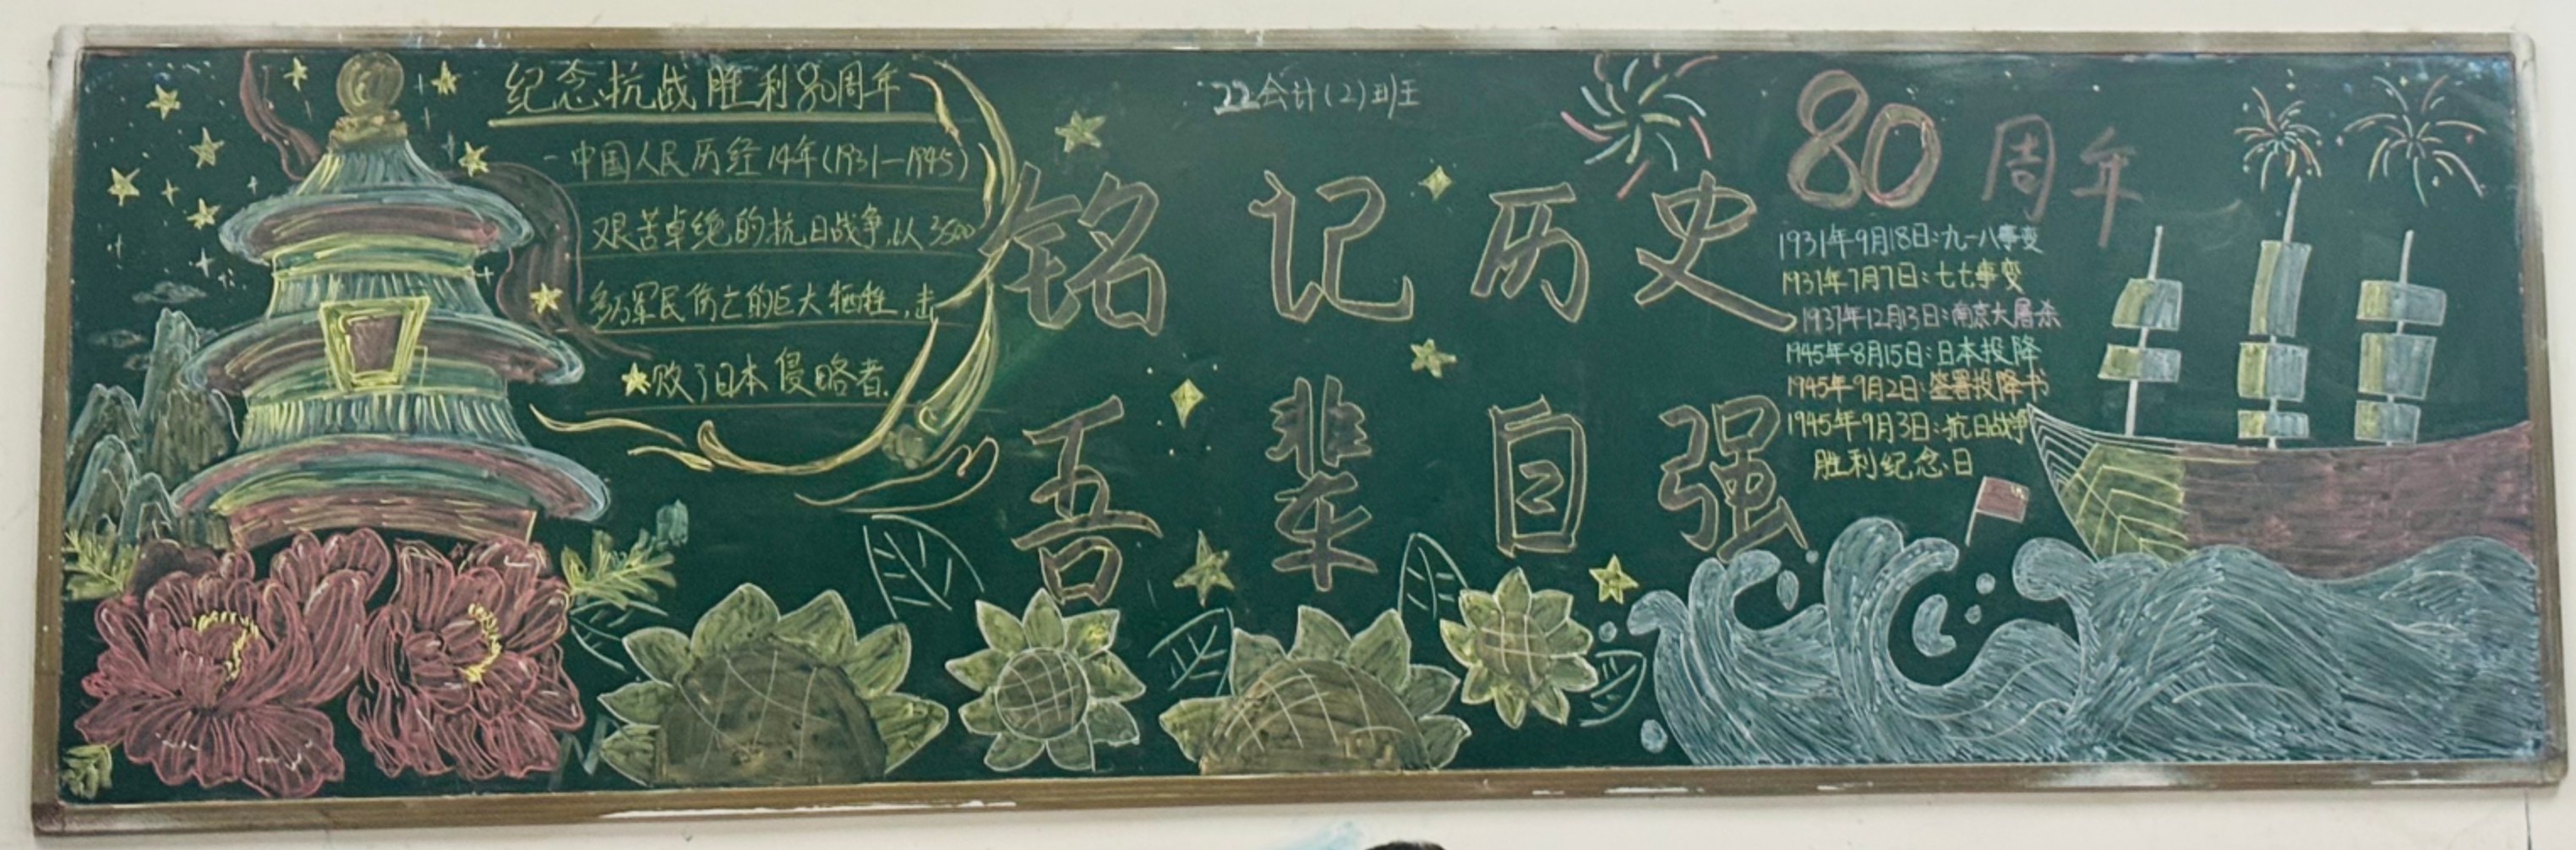 纪念抗战胜利80周年
中国人民历经14年(1931—1945)
艰苦卓绝的抗日战争,以3500
多万军民伤亡的巨大牺牲,击
败了日本侵略者.
22会计(2)班
铭记历史
吾辈自强
80周年
1931年9月18日:九一八事变
1931年7月7日:七七事变
1937年12月13日:南京大屠杀
1945年8月15日:日本投降
1945年9月2日:签署投降书
1945年9月3日:抗日战争
胜利纪念日